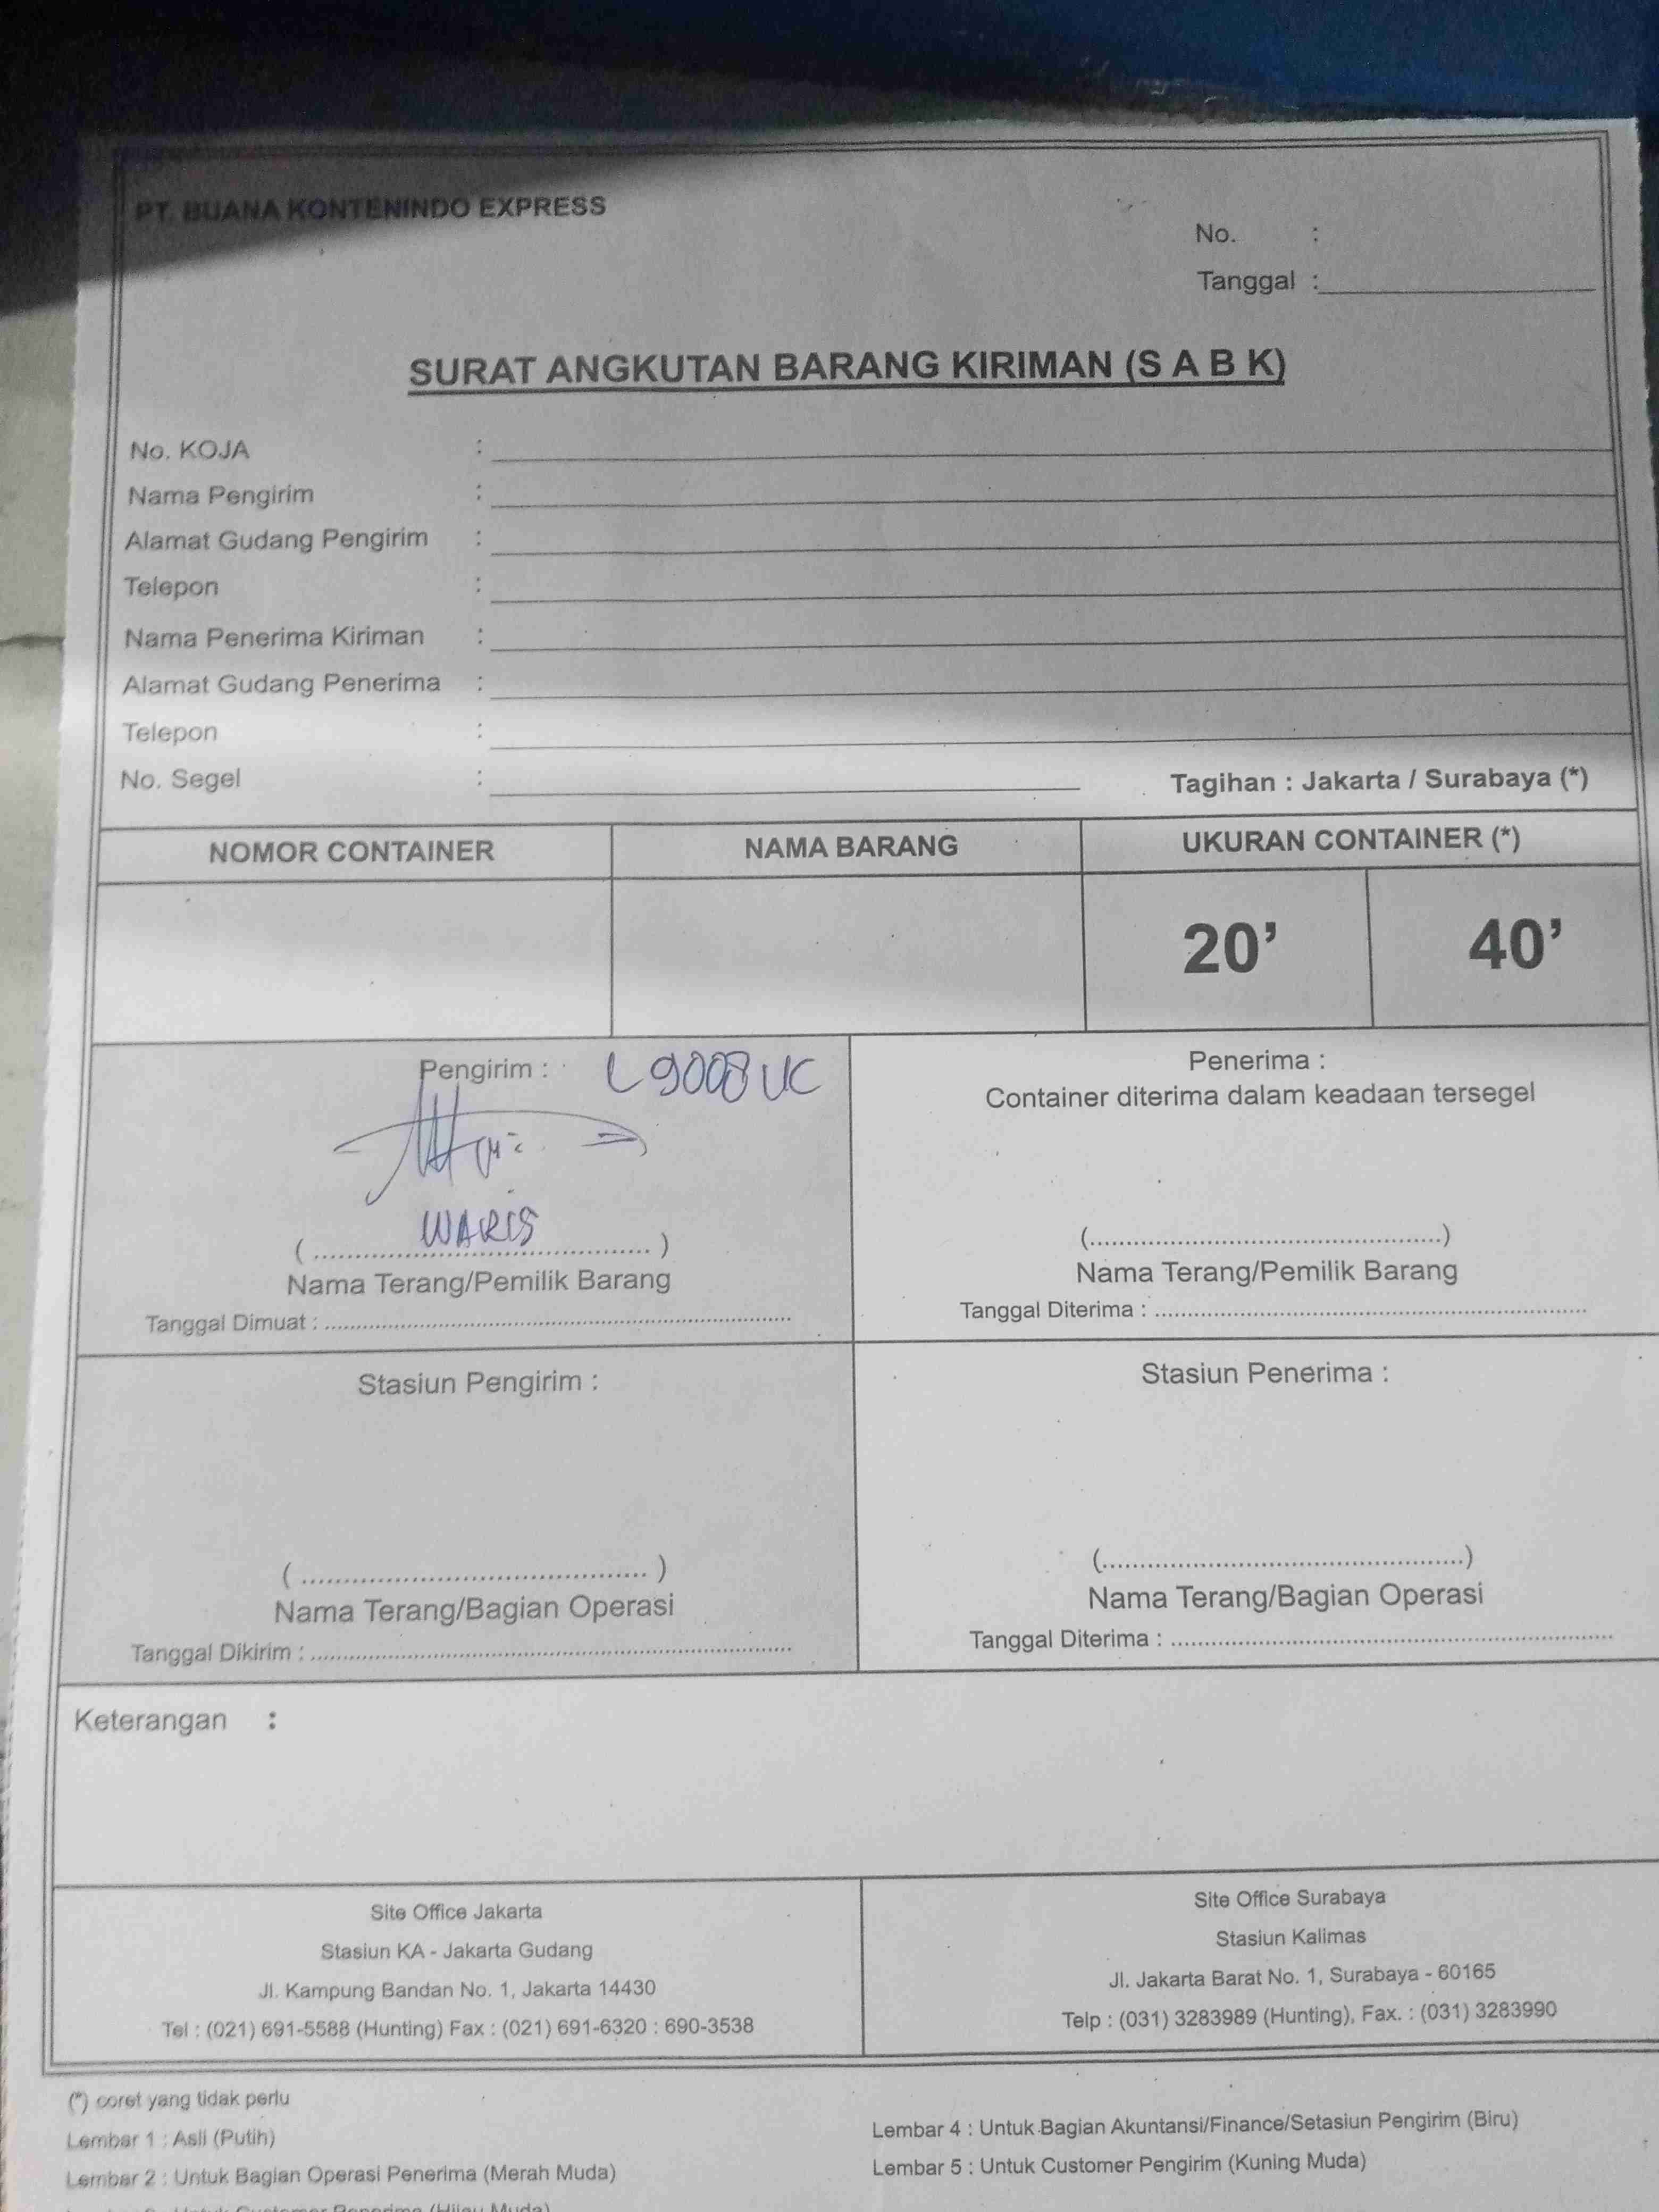 PT. BUANA KONTENINDO EXPRESS
No. :
Tanggal :
SURAT ANGKUTAN BARANG KIRIMAN (S A B K)
No. KOJA :
Nama Pengirim :
Alamat Gudang Pengirim :
Telepon :
Nama Penerima Kiriman :
Alamat Gudang Penerima :
Telepon :
No. Segel : Tagihan : Jakarta / Surabaya (*)
NOMOR CONTAINER NAMA BARANG UKURAN CONTAINER (*)
20' 40'
Pengirim : L 9008 UC
WARIS
(............................................)
Nama Terang/Pemilik Barang
Tanggal Dimuat : ............................................
Penerima :
Container diterima dalam keadaan tersegel
(............................................)
Nama Terang/Pemilik Barang
Tanggal Diterima : ............................................
Stasiun Pengirim :
(............................................)
Nama Terang/Bagian Operasi
Tanggal Dikirim : ............................................
Stasiun Penerima :
(............................................)
Nama Terang/Bagian Operasi
Tanggal Diterima : ............................................
Keterangan :
Site Office Jakarta
Stasiun KA - Jakarta Gudang
Jl. Kampung Bandan No. 1, Jakarta 14430
Tel : (021) 691-5588 (Hunting) Fax : (021) 691-6320 : 690-3538
Site Office Surabaya
Stasiun Kalimas
Jl. Jakarta Barat No. 1, Surabaya - 60165
Telp : (031) 3283989 (Hunting), Fax. : (031) 3283990
(*) coret yang tidak perlu
Lembar 1 : Asli (Putih)
Lembar 2 : Untuk Bagian Operasi Penerima (Merah Muda)
Lembar 4 : Untuk Bagian Akuntansi/Finance/Setasiun Pengirim (Biru)
Lembar 5 : Untuk Customer Pengirim (Kuning Muda)